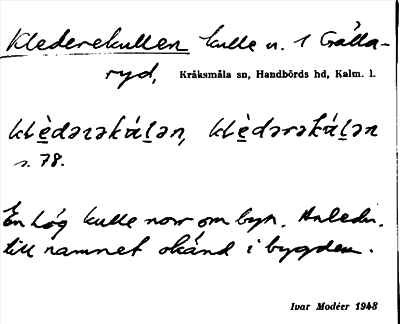 Klederekullen kulle n. 1 Gålla-
ryd, Kråksmåla sn, Handbörds hd, Kalm. l.
klèdərəkúlən, klèdərəkúlən
s. 78.
En hög kulle norr om byn. Anledn.
till namnet okänd i bygden.
Ivar Modéer 1948